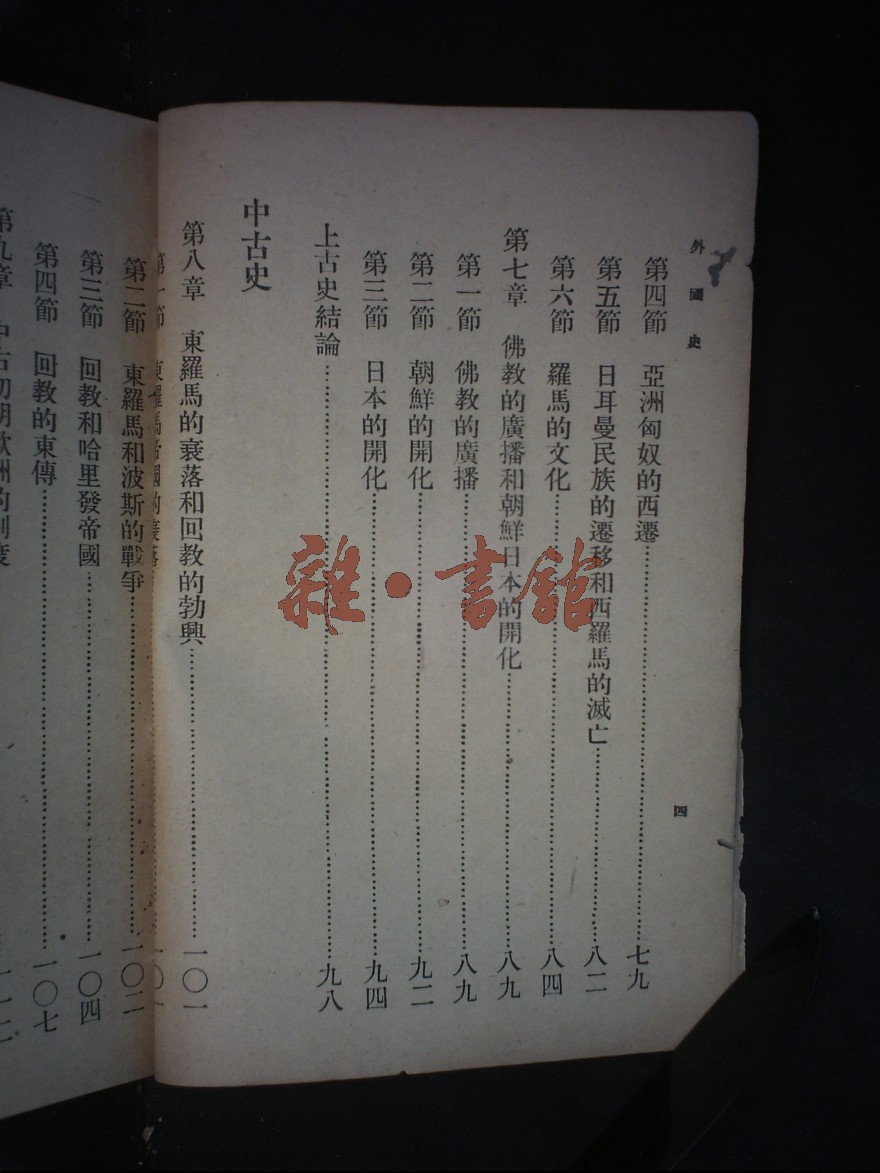 外國史
四
第四節　亞洲匈奴的西遷……七九
第五節　日耳曼民族的遷移和西羅馬的滅亡……八二
第六節　羅馬的文化……八四
第七章　佛教的廣播和朝鮮日本的開化……八九
第一節　佛教的廣播……八九
第二節　朝鮮的開化……九二
第三節　日本的開化……九四
上古史結論……九八
中古史
第八章　東羅馬的衰落和回教的勃興……一〇一
第一節　東羅馬帝國的衰落……一〇一
第二節　東羅馬和波斯的戰爭……一〇二
第三節　回教和哈里發帝國……一〇四
第四節　回教的東傳……一〇七
第九章　中古初期歐洲的制度
雜·書館